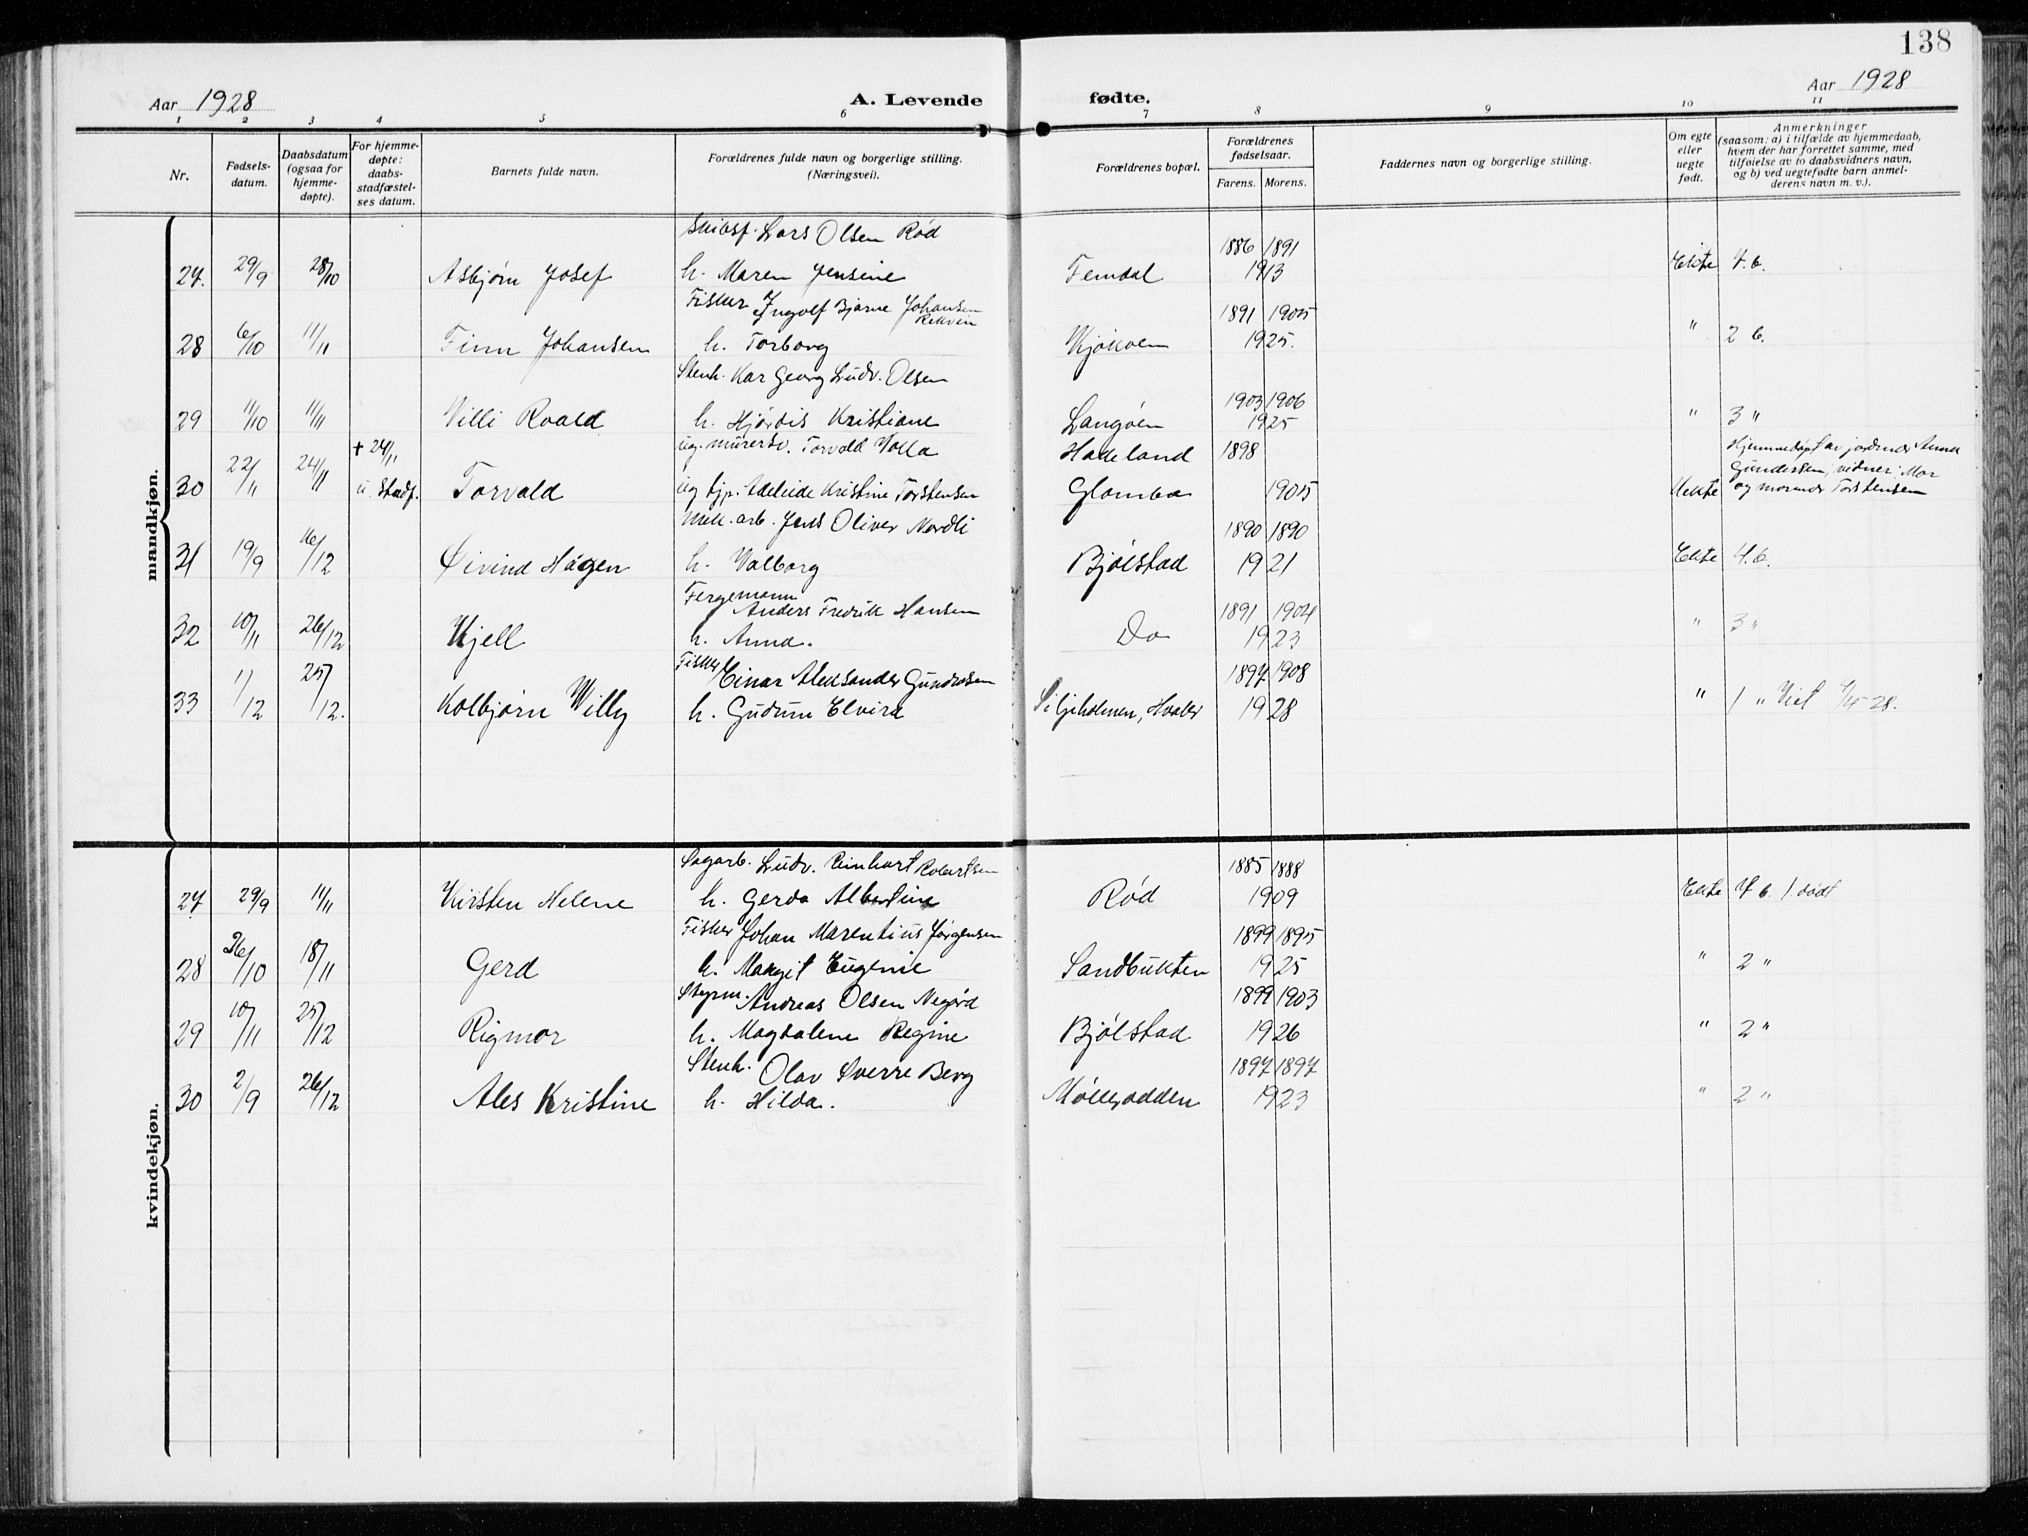 138
Aar 1928 A. Levende fødte. Aar 1928
1 2 3 4 5 6 7 8 9 10 11
Nr.
Fødsels-
datum.
Daabsdatum
(ogsaa for
hjemme-
døpte).
For hjemme-
døpte:
daabs-
stadfæstel-
ses datum.
Barnets fulde navn.
Forældrenes fulde navn og borgerlige stilling.
(Næringsvei).
Forældrenes bopæl.
Forældrenes
fødselsaar.
Farens. Morens.
Faddernes navn og borgerlige stilling.
Om egte
eller
uegte
født.
Anmerkninger
(saasom: a) i tilfælde av hjemmedaab,
hvem der har forrettet samme, med
tilføielse av to daabsvidners navn,
og b) ved uegtefødte barn anmel-
derens navn m. v.).
mandkjøn.
Skibsf. Lars Olsen Rød 1886 1891
27. 29/9 28/10 Asbjørn Josef h. Maren Jensine Femdal 1913 Ekte 7. b.
Fisker Ingolf Bjarne Johansen
Rekvin 1891 1905
28 6/10 11/11 Finn Johansen h. Torborg Kjøkøen 1925. " 2 b.
Stenh. Kar Georg Ludv. Olsen 1903 1906
29 11/10 11/11 Villi Roald h. Hjørdis Kristiane Langøen 1925 " 3 "
† 24/11 ug. murersv. Torvald Volla Hadeland 1898 Hjemmedøpt av jordmor Anna
Gundersen, vidner: Mor
30 22/11 24/11 u. Stadf. Torvald ug tjp. Adeleide Kristine Torstensen Glomba 1905 Uekte og mormor Torstensen
Mek. arb. Jens Oliver Nordli 1890 1890
31 19/9 16/12 Øivind Hagen h. Valborg Bjølstad 1921 Ekte 4. b.
Fergemann
Anders Fredrik Hansen 1891 1904
32 10/11 26/12 Kjell h. Anna. Do 1923 " 3 "
Fisker Einar Aleksander Gundersen 1897 1908
33 1/12 25/12. Kolbjørn Willy h. Gudrun Elvira Siljeholmen, Hvaler 1928 " 1 " Viet
kvindekjøn.
Sagarb. Ludv. Reinhart Robertsen 1885 1888
27 29/9 11/11 Kirsten Helene h. Gerda Albertine Rød 1909 Ekte 7 b. 1. dødt
Fisker Johan Marentius Jørgensen 1899 1895
28 26/10 18/11 Gerd h. Margit Eugenie Sandbukten 1925 " 2 "
Styrm. Andreas Olsen Negård 1899 1903
29 10/11 25/12 Rigmor h. Magdalene Regine Bjølstad 1926 " 2 "
Stenh. Olav Sverre Berg 1897 1897
30 2/9 26/12 Ales Kristine h. Hilda. Møllerodden 1923 " 2 "